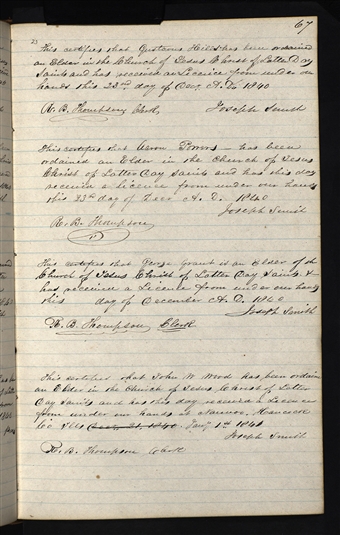 67
23
This certifies that Gustavus Hills has been ordained
an Elder in the Church of Jesus Christ of Latter Day
Saints and has received an Licence from under our
hands this 23rd day of Decr. A.D. 1840
R. B. Thompson, Clerk,
Joseph Smith
This certifies that Aaron has been
ordained an Elder in the Church of Jesus
Christ of Latter Day Saints and has this day
received a Licence from under our hands
this 23d day of Decr A. D. 1840
Joseph Smith
R. B. Thompson
This certifies that George Grant is an Elder of the
Church of Jesus Christ of Latter Day Saints &
has received a Licence from under our hands
this day of December A.D. 1840
Joseph Smith
R. B. Thompson Clerk
This certifies that John W. Wood has been ordain
an Elder in the Church of Jesus Christ of Latter
Day Saints and has this day received a Licence
from under our hands at Nauvoo, Hancock
Co Ills Jany 1st 1841
Joseph Smith
R. B. Thompson Clerk